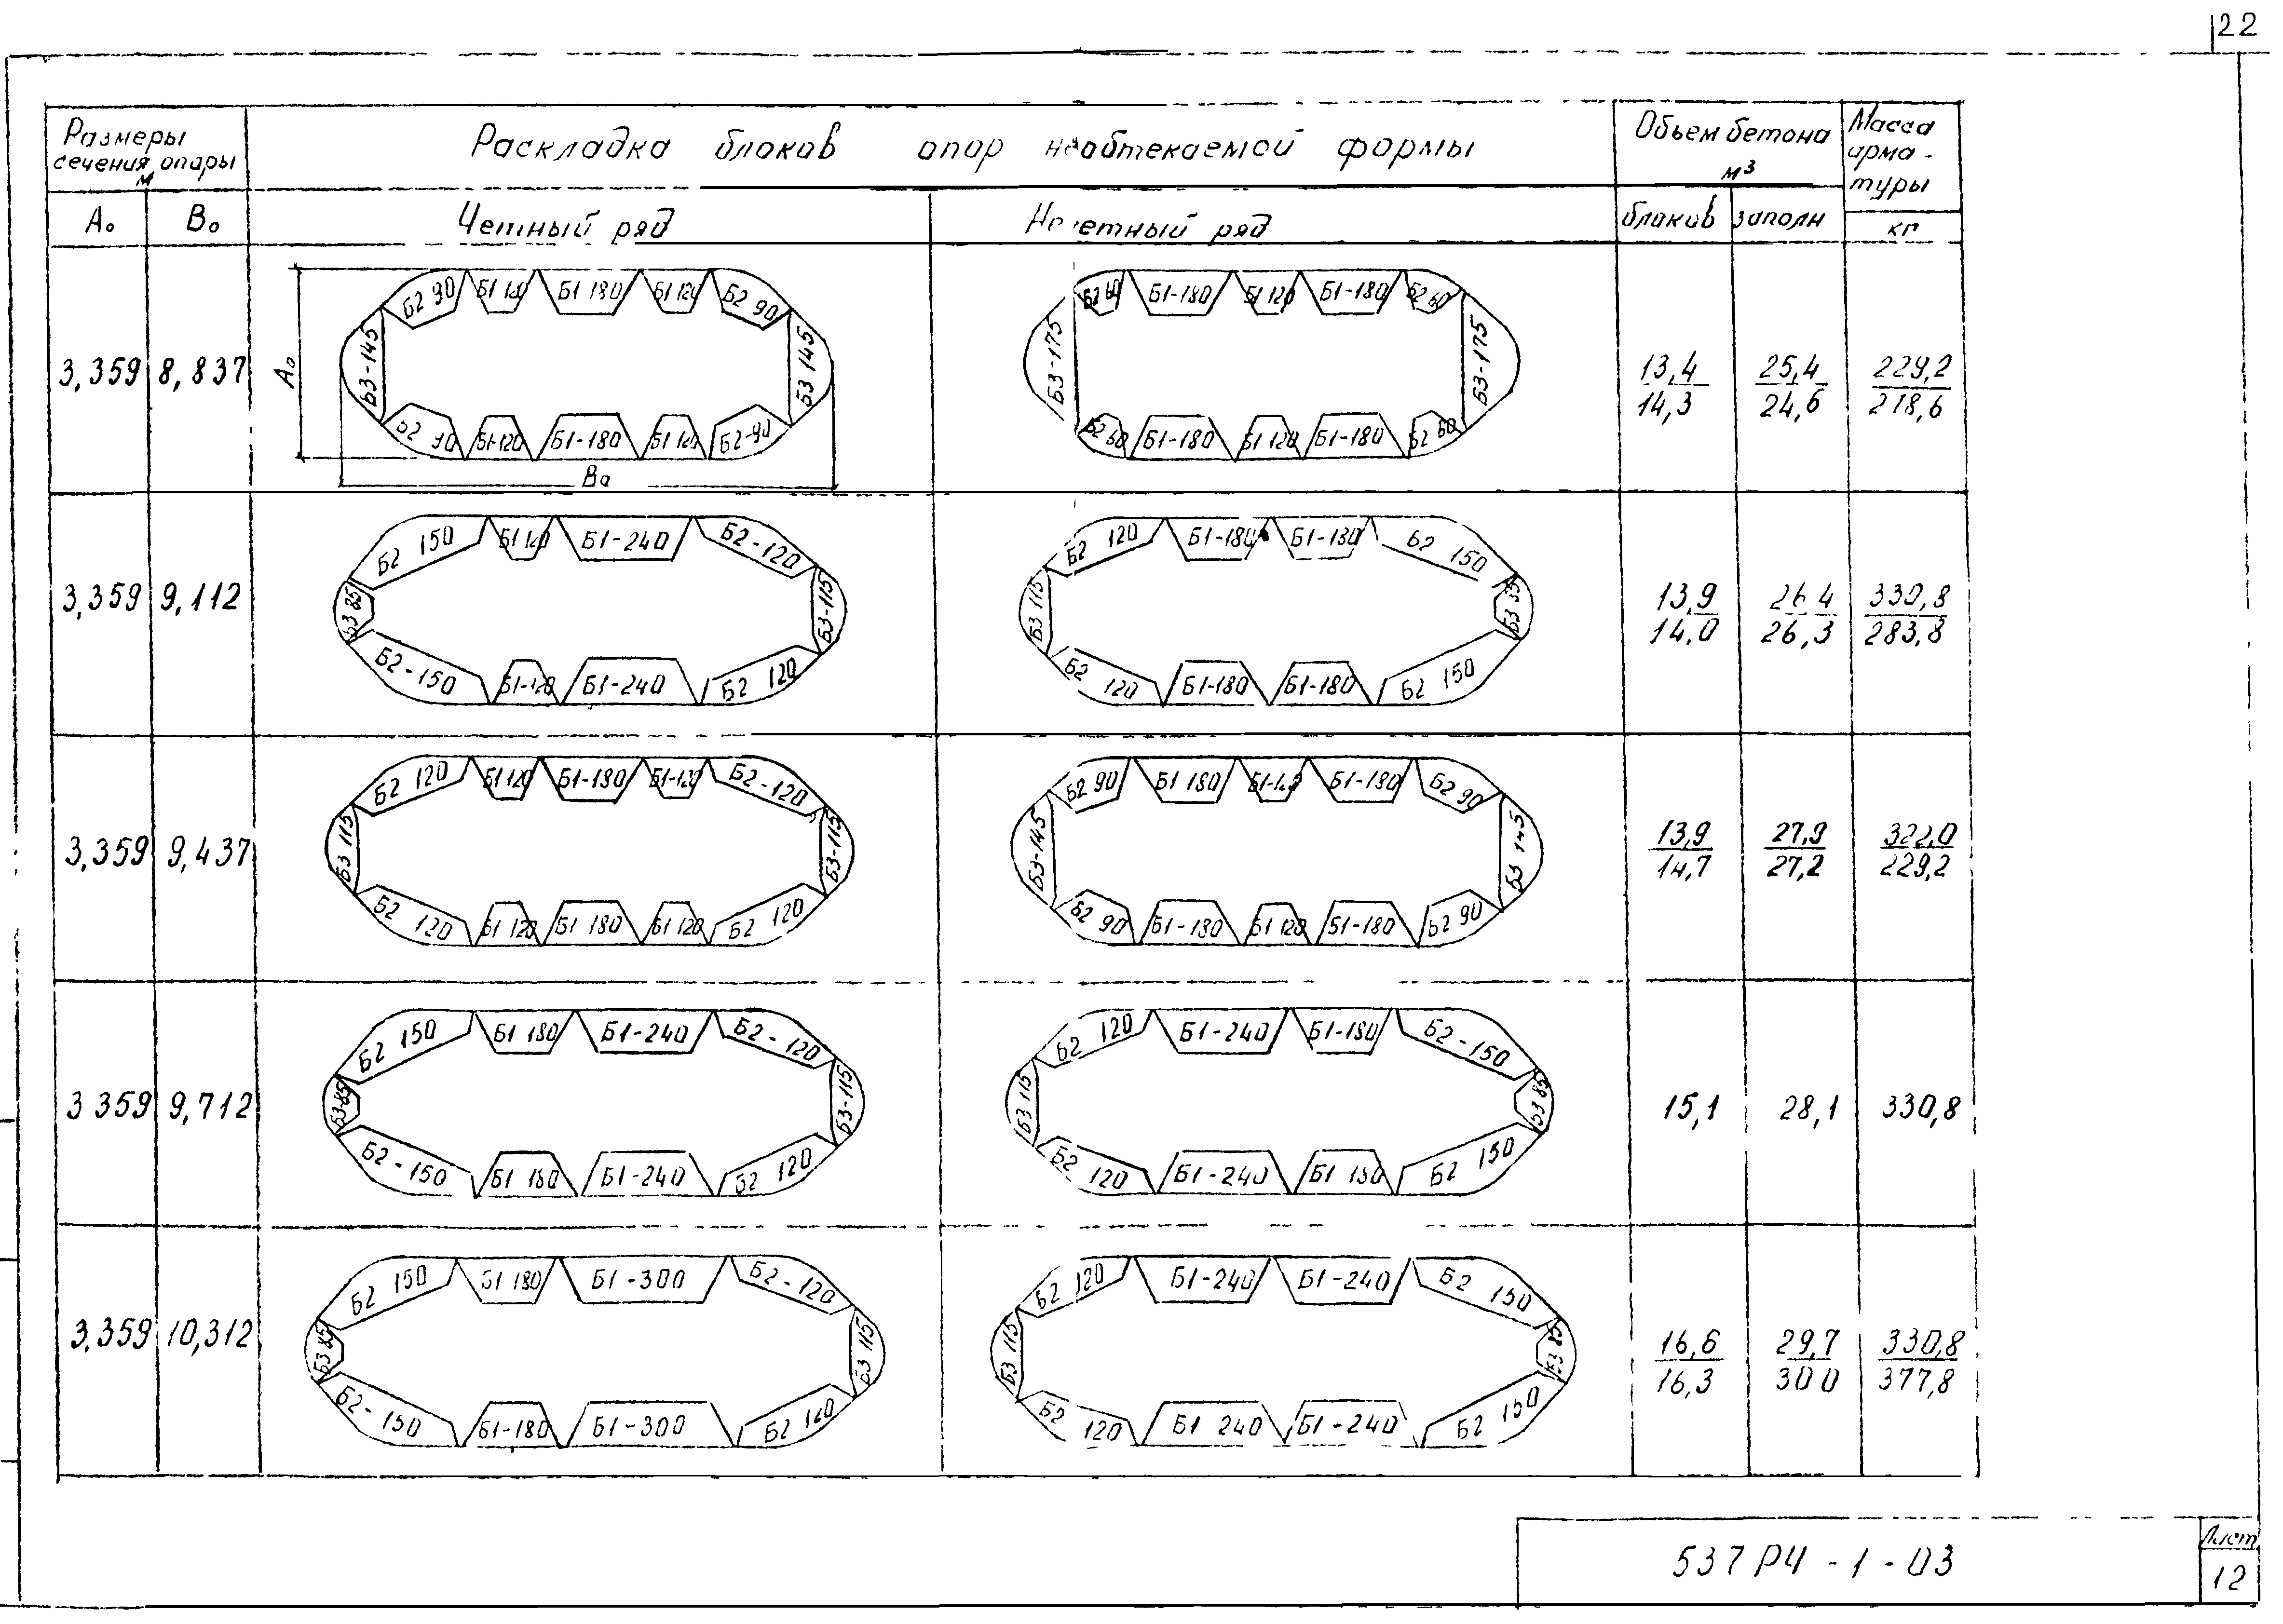 22
Размеры сечения опары м
Раскладка блоков опор необтекаемой формы
Объем бетона м³
Масса арма-туры
Ао Во
Четный ряд
Нечетный ряд
блаков заполн кг
3,359 8,837
Б2 90 Б1 120 Б1 180 Б1 120 Б2 90
Б3-145 Б3 145
Б2 90 Б1-120 Б1-180 Б1 120 Б2-90
Ао
Во
Б2 60 Б1-180 Б1 120 Б1-180 Б2 60
Б3-175 Б3-175
Б2 60 Б1-180 Б1 120 Б1-180 Б2 60
13,4 25,4 229,2
14,3 24,6 218,6
3,359 9,112
Б2 150 Б1 120 Б1-240 Б2-120
Б3 85 Б3-115
Б2-150 Б1-120 Б1-240 Б2 120
Б2 120 Б1-180 Б1-180 Б2 150
Б3 115 Б3 85
Б2 120 Б1-180 Б1-180 Б2 150
13,9 26 4 330,8
14,0 26,3 283,8
3,359 9,437
Б2 120 Б1 120 Б1-180 Б1-120 Б2-120
Б3 115 Б3-115
Б2 120 Б1 120 Б1 180 Б1 120 Б2 120
Б2 90 Б1 180 Б1-120 Б1-180 Б2 90
Б3-145 Б3 145
Б2 90 Б1-180 Б1 120 Б1-180 Б2 90
13,9 27,9 322,0
14,7 27,2 229,2
3 359 9,712
Б2 150 Б1 180 Б1-240 Б2-120
Б3-85 Б3-115
Б2-150 Б1 180 Б1-240 Б2 120
Б2 120 Б1-240 Б1-180 Б2-150
Б3 115 Б3 85
Б2 120 Б1-240 Б1 180 Б2 150
15,1 28,1 330,8
3,359 10,312
Б2 150 Б1 180 Б1-300 Б2-120
Б3 85 Б3 115
Б2-150 Б1-180 Б1-300 Б2 120
Б2 120 Б1-240 Б1-240 Б2 150
Б3 115 Б3 85
Б2 120 Б1 240 Б1-240 Б2 150
16,6 29,7 330,8
16,3 30 0 377,8
537РЧ-1-03
Лист
12